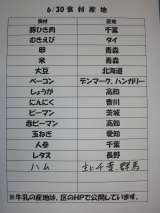 6/30食材産地
食材 産地
豚ひき肉 千葉
むきえび タイ
卵 青森
米 青森
大豆 北海道
ベーコン デンマーク、ハンガリー
しょうが 高知
にんにく 香川
ピーマン 茨城
赤ピーマン 高知
玉ねぎ 愛知
人参 千葉
レタス 長野
ハム 千葉、群馬
※牛乳の産地は、区のHPで公開しています。